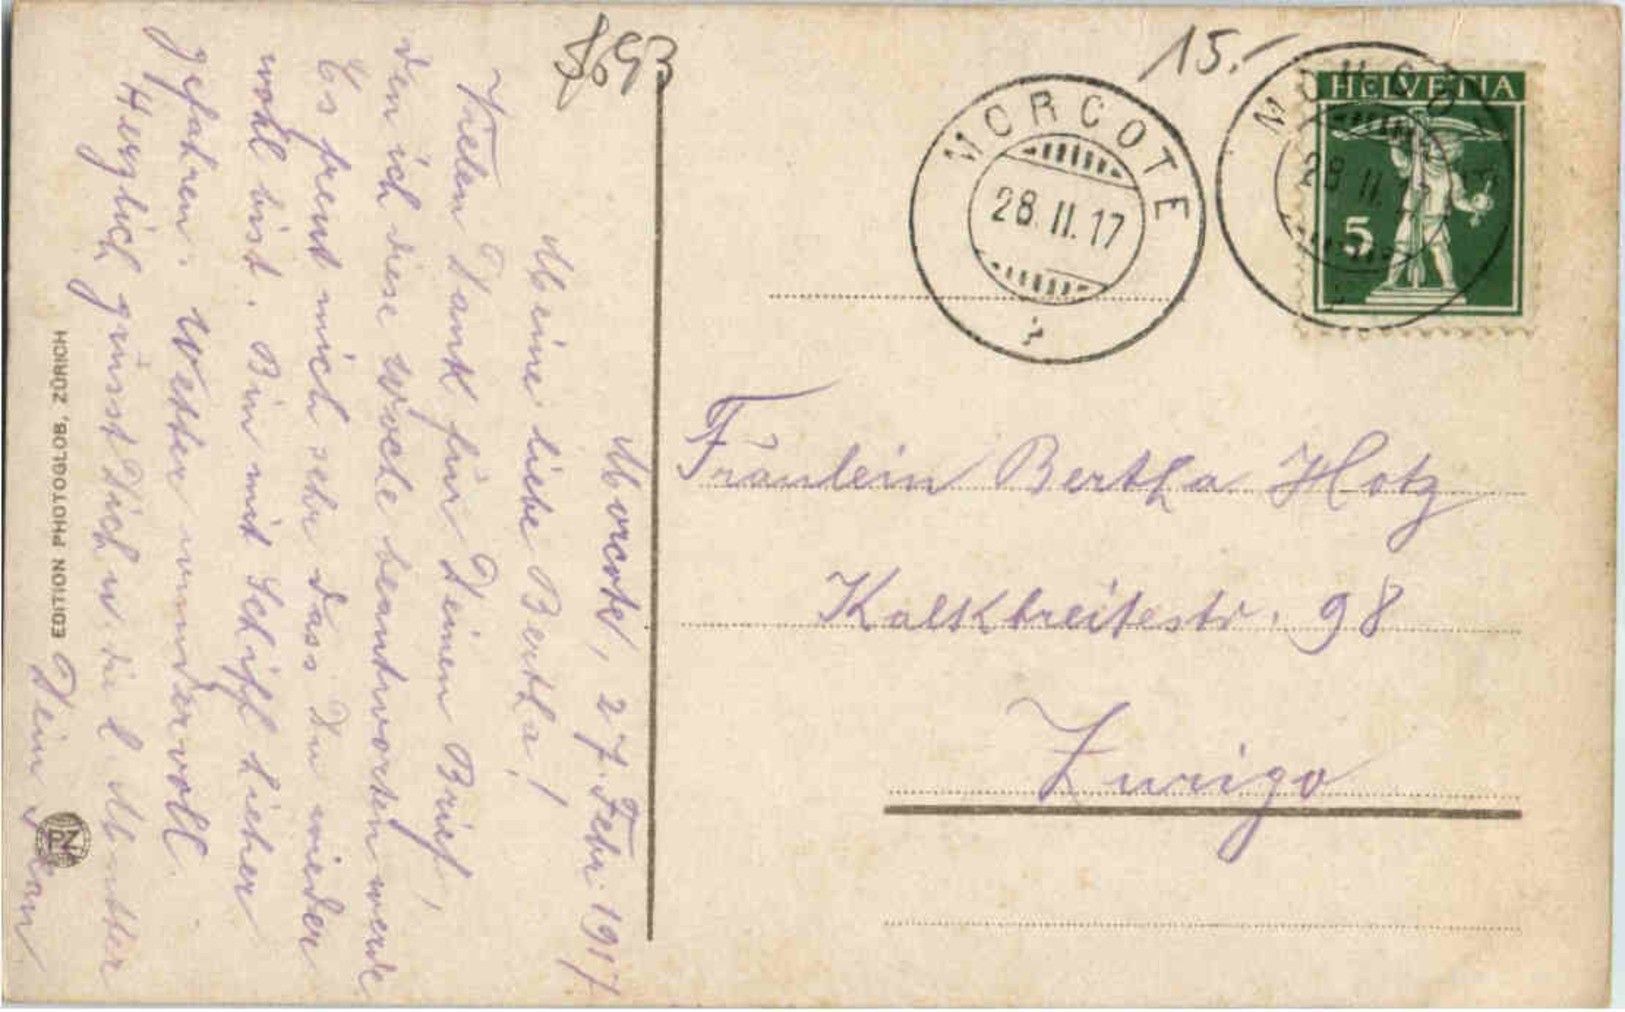 Morcote, 27. Febr. 1917
Meine liebe Bertha!
Vielen Dank für Deinen Brief,
den ich diese Woche beantworten werde
Es freut mich sehr dass Du wieder
wohl bist. Bin mit Schiff hieher
gefahren. Wetter wundervoll.
Herzlich grüsst Dich u. die l. Mutter
Dein
EDITION PHOTOGLOB, ZÜRICH
15.-
MORCOTE
28.II.17
HELVETIA
5
28.II.17
Fräulein Bertha Hotz
Kalkbreitestr. 98
Zurigo